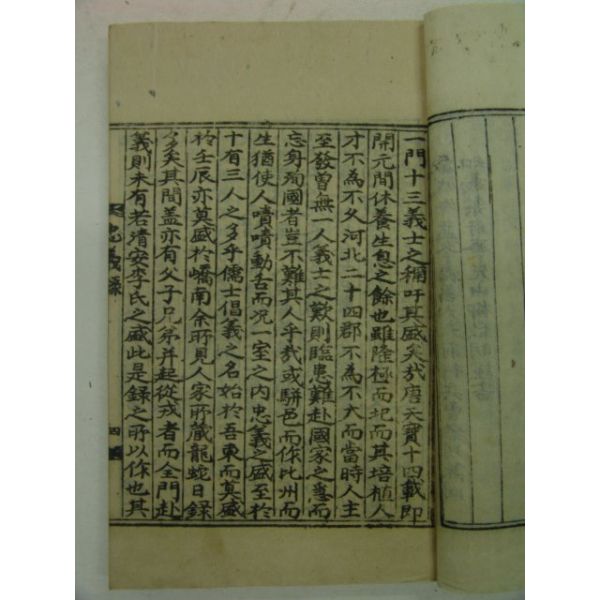 一門十三義士之稱吁其盛矣哉唐天寶十四載即
開元間休養生息之餘也雖隆極而圮而其培植人
才不為不久河北二十四郡不為不大而當時人主
至發曾無一人義士之歎則臨患難赴國家之急而
忘身殉國者豈不難其人乎哉或騈邑而作比州而
生猶使人嘖嘖動舌而況一室之內忠義之盛至於
十有三人之多乎儒士倡義之名始於吾東而莫盛
於壬辰亦莫盛於嶠南余所見人家所藏龍蛇日錄
多矣其間盖亦有父子兄弟并起從戎者而全門赴
義則未有若清安李氏之盛此是錄之所以作也其
忠義錄
四